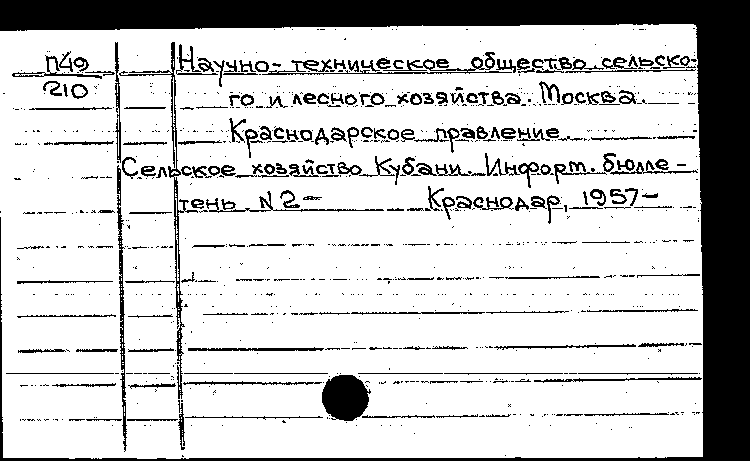 П49
210
Научно-техническое общество сельско-
го и лесного хозяйства. Москва.
Краснодарское правление.
Сельское хозяйство Кубани. Информ. бюлле-
тень. N 2- Краснодар, 1957-